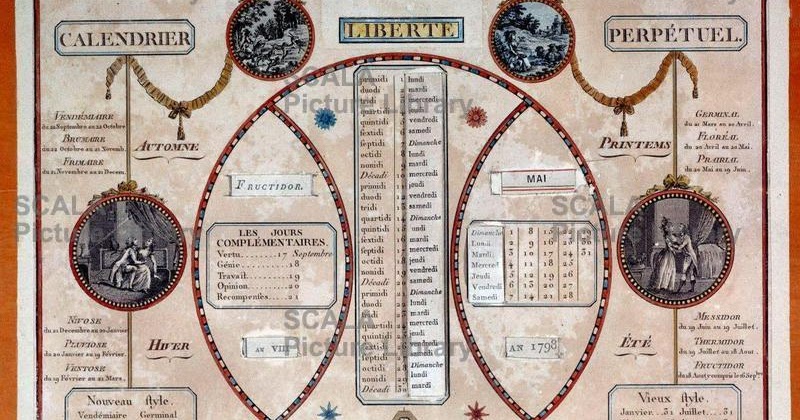 CALENDRIER
LIBERTE
PERPÉTUEL.
SCALA
Picture Library
VENDÉMIAIRE
du 22 Septembre au 22 Octobre.
BRUMAIRE
du 22 Octobre au 21 Novemb.
FRIMAIRE
du 21 Novembre au 21 Decem.
AUTOMNE
GERMINAL
du 21 Mars au 20 Avril.
FLORÉAL
du 20 Avril au 20 Mai.
PRAIRIAL
du 20 Mai au 19 Juin.
PRINTEMS
primidi 1 lundi
duodi mardi
tridi
quartidi
quintidi vendredi
sextidi samedi
septidi Dimanche
octidi lundi
nonidi mardi
Décadi mercredi
primidi jeudi
duodi vendredi
tridi samedi
quartidi Dimanche
quintidi lundi
sextidi mardi
septidi mercredi
octidi jeudi
nonidi vendredi
Décadi samedi
primidi Dimanche
duodi lundi
tridi mardi
mercredi
quintidi jeudi
sextidi vendredi
septidi samedi
octidi Dimanche
nonidi lundi
Décadi 30 mardi
FRUCTIDOR.
LES JOURS
COMPLÉMENTAIRES.
Vertu.......17 Septembre
Génie...........18
Travail.........19
Opinion.........20
Recompenses....21
AN VII
MAI
Dimanche
Lundi 2 9 16
Mardi 3 10 17
Mercred 4 11 18
Jeudi 5 12 19 26
Vendredi 6 13 20 27
Samedi 7 14 21 28
AN 1798
SCALA
Picture Library
SCALA
Picture Library
NIVOSE
du 21 Decembre au 20 Janvier
PLUVIOSE
du 20 Janvier au 19 Février.
VENTOSE
du 19 Février au 21 Mars.
HIVER
MESSIDOR
du 19 Juin au 19 Juillet.
THERMIDOR
du 19 Juillet au 18 Aout.
FRUCTIDOR
ÉTÉ
SCALA
Picture Library
Nouveau style.
Vendémiaire Germinal
Vieux style.
Janvier...31 Juillet...31